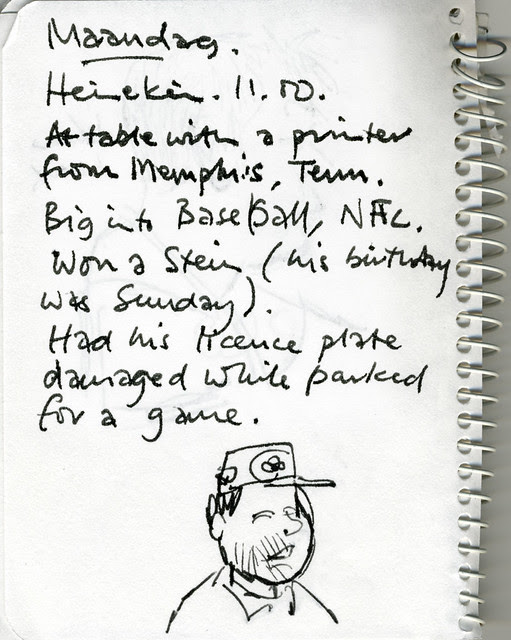 Maandag.
Heineken. 11.00.
At table with a printer
from Memphis, Tenn.
Big into Baseball, NFL.
Won a Stein (his birthday
was Sunday).
Had his licence plate
damaged while parked
for a game.